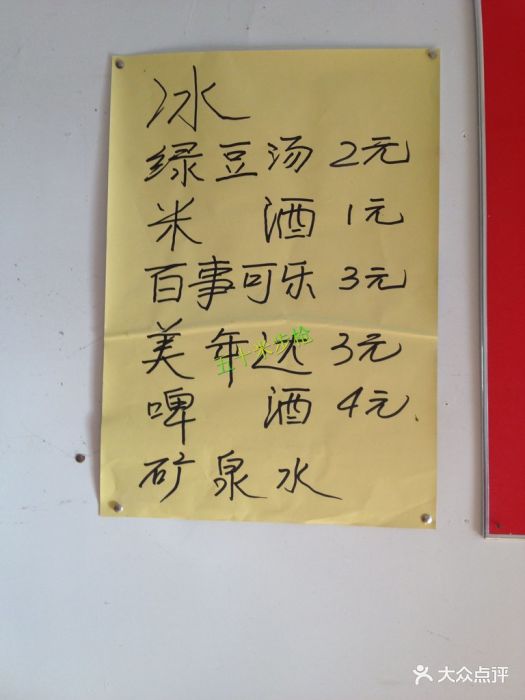 冰
绿豆汤 2元
米 酒 1元
百事可乐 3元
美年达 3元
五十米步枪
啤 酒 4元
矿泉水
大众点评